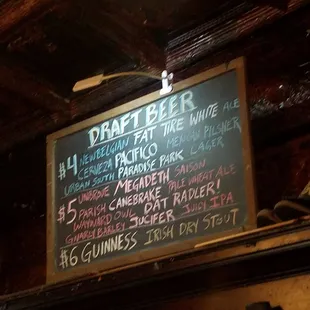 DRAFT BEER
$4 NEWBELGIAN FAT TIRE WHITE ALE
CERVEZA PACIFICO MEXICAN PILSNER
URBAN SOUTH PARADISE PARK LAGER
$5 UNIBROUE MEGADETH SAISON
PARISH CANEBRAKE PALE WHEAT ALE
WAYWARD OWL DAT RADLER!
GNARLY BARLEY JUCIFER JUICY IPA
$6 GUINNESS IRISH DRY STOUT